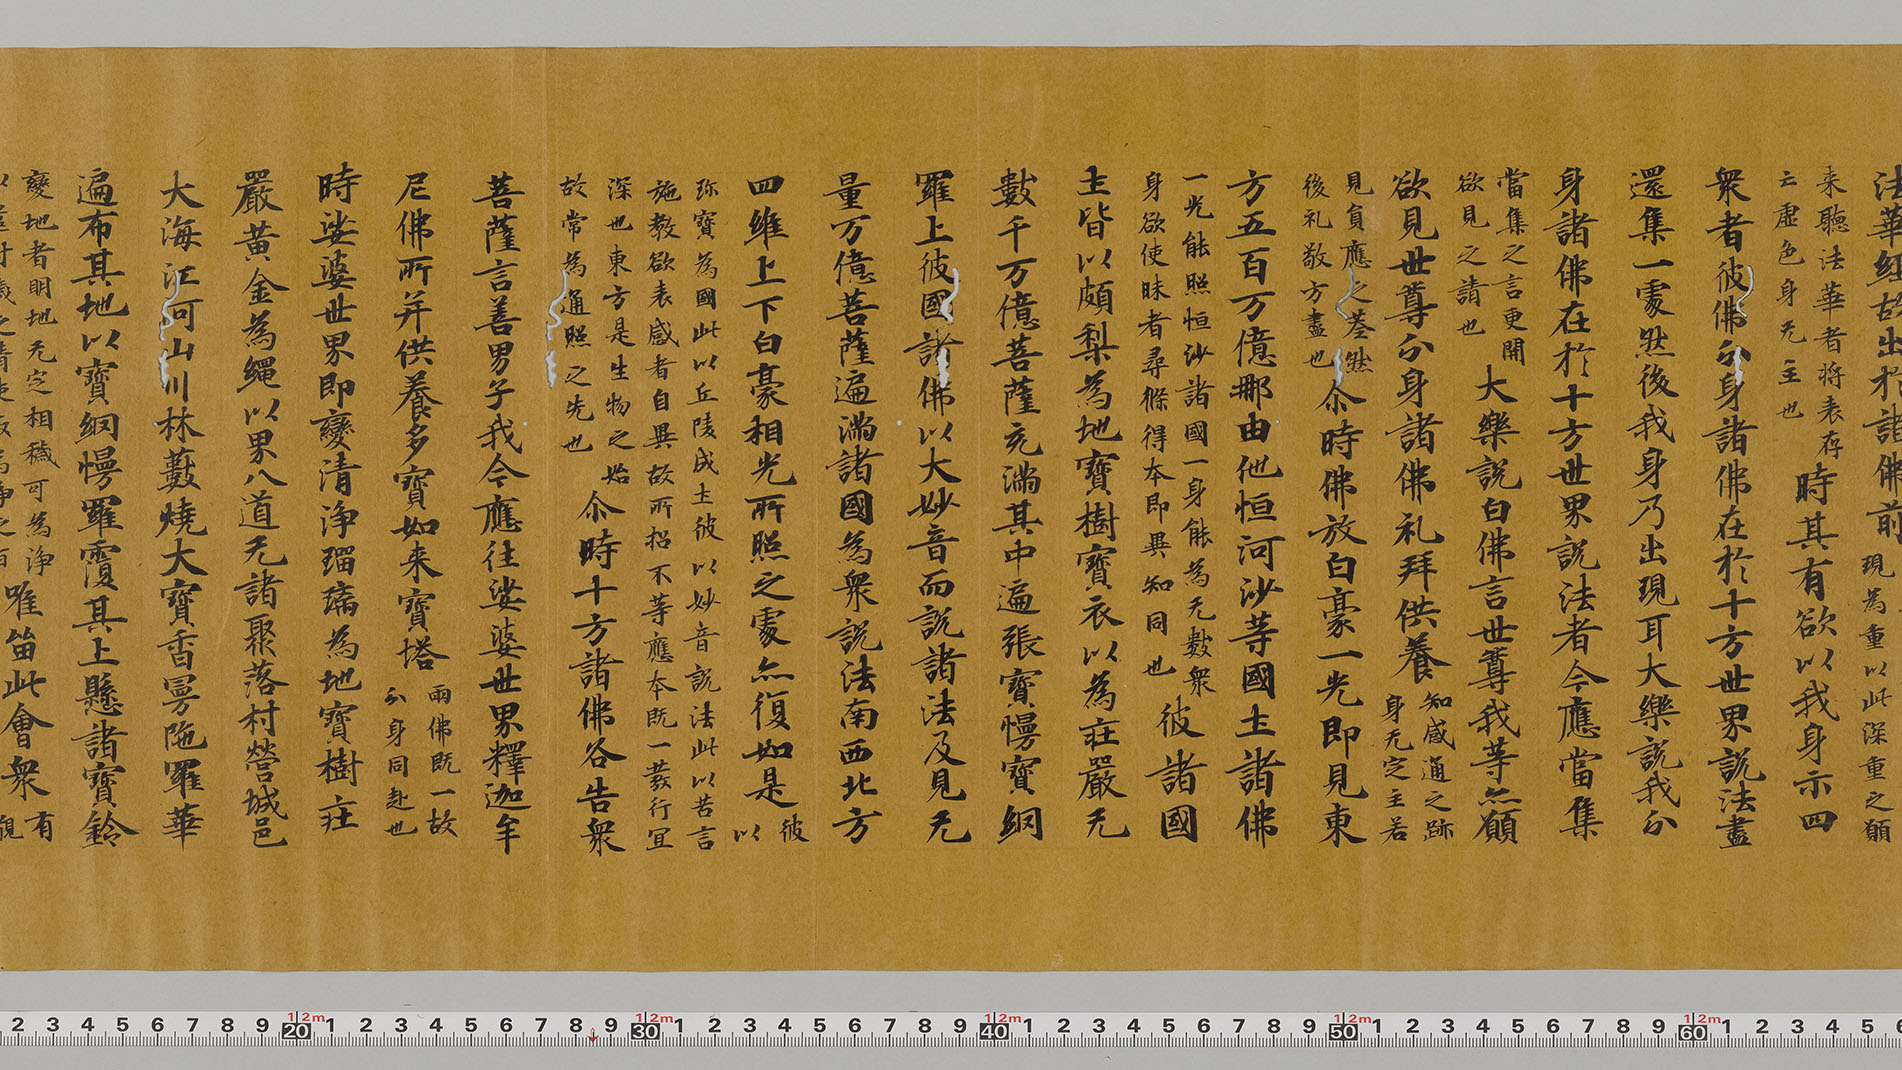 法華經故出於諸佛前
現為重以此深重之願
来聽法華者将表存
云虛色身无主也
時其有欲以我身示四
衆者彼佛分身諸佛在於十方世界說法盡
還集一處然後我身乃出現耳大樂說我分
身諸佛在於十方世界說法者今應當集
當集之言更開
欲見之請也
大樂說白佛言世尊我等亦願
欲見世尊分身諸佛礼拜供養
知感通之跡
身无定主若
見負應之荃然
後礼敬方盡也
尒時佛放白豪一光即見東
方五百万億那由他恒河沙等國土諸佛
一光能照恒沙諸國一身能為无數衆
身欲使昧者尋條得本即異知同也
彼諸國
土皆以頗梨為地寶樹寶衣以為莊嚴无
數千万億菩薩充滿其中遍張寶慢寶網
羅上彼國諸佛以大妙音而說諸法及見无
量万億菩薩遍滿諸國為衆說法南西北方
四維上下白豪相光所照之處亦復如是
彼
以
珎寶為國此以丘陵成土彼以妙音說法此以苦言
施教欲表感者自異故所招不等應本既一教行冝
深也東方是生物之始
故常為通照之先也
尒時十方諸佛各告衆
菩薩言善男子我今應往娑婆世界釋迦牟
尼佛所并供養多寶如来寶塔
兩佛既一故
分身同赴也
時娑婆世界即變清淨瑠璃為地寶樹莊
嚴黃金為繩以界八道无諸聚落村營城邑
大海江河山川林藪燒大寶香曼陁羅華
遍布其地以寶網慢羅覆其上懸諸寶鈴
變地者明地无定相穢可為淨
唯留此會衆
有